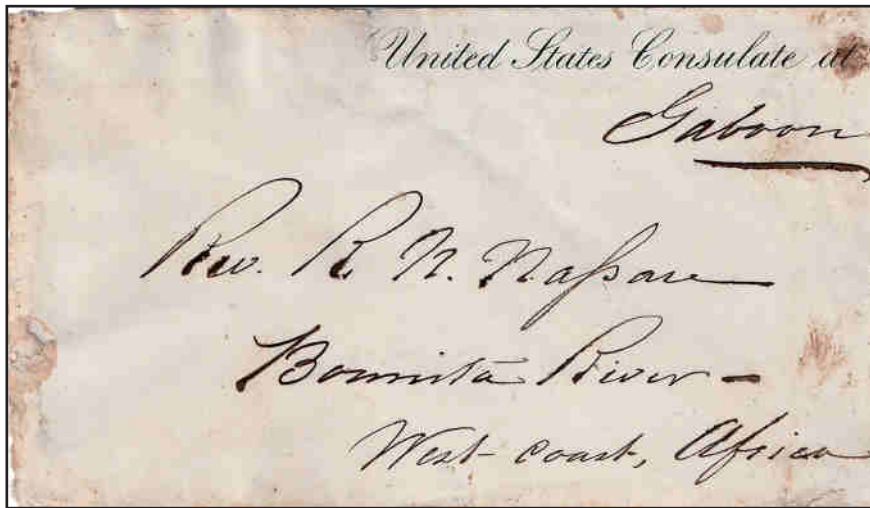 United States Consulate at
Gaboon
Rev. R. N. Naſsau
Bonnita River -
West coast, Africa